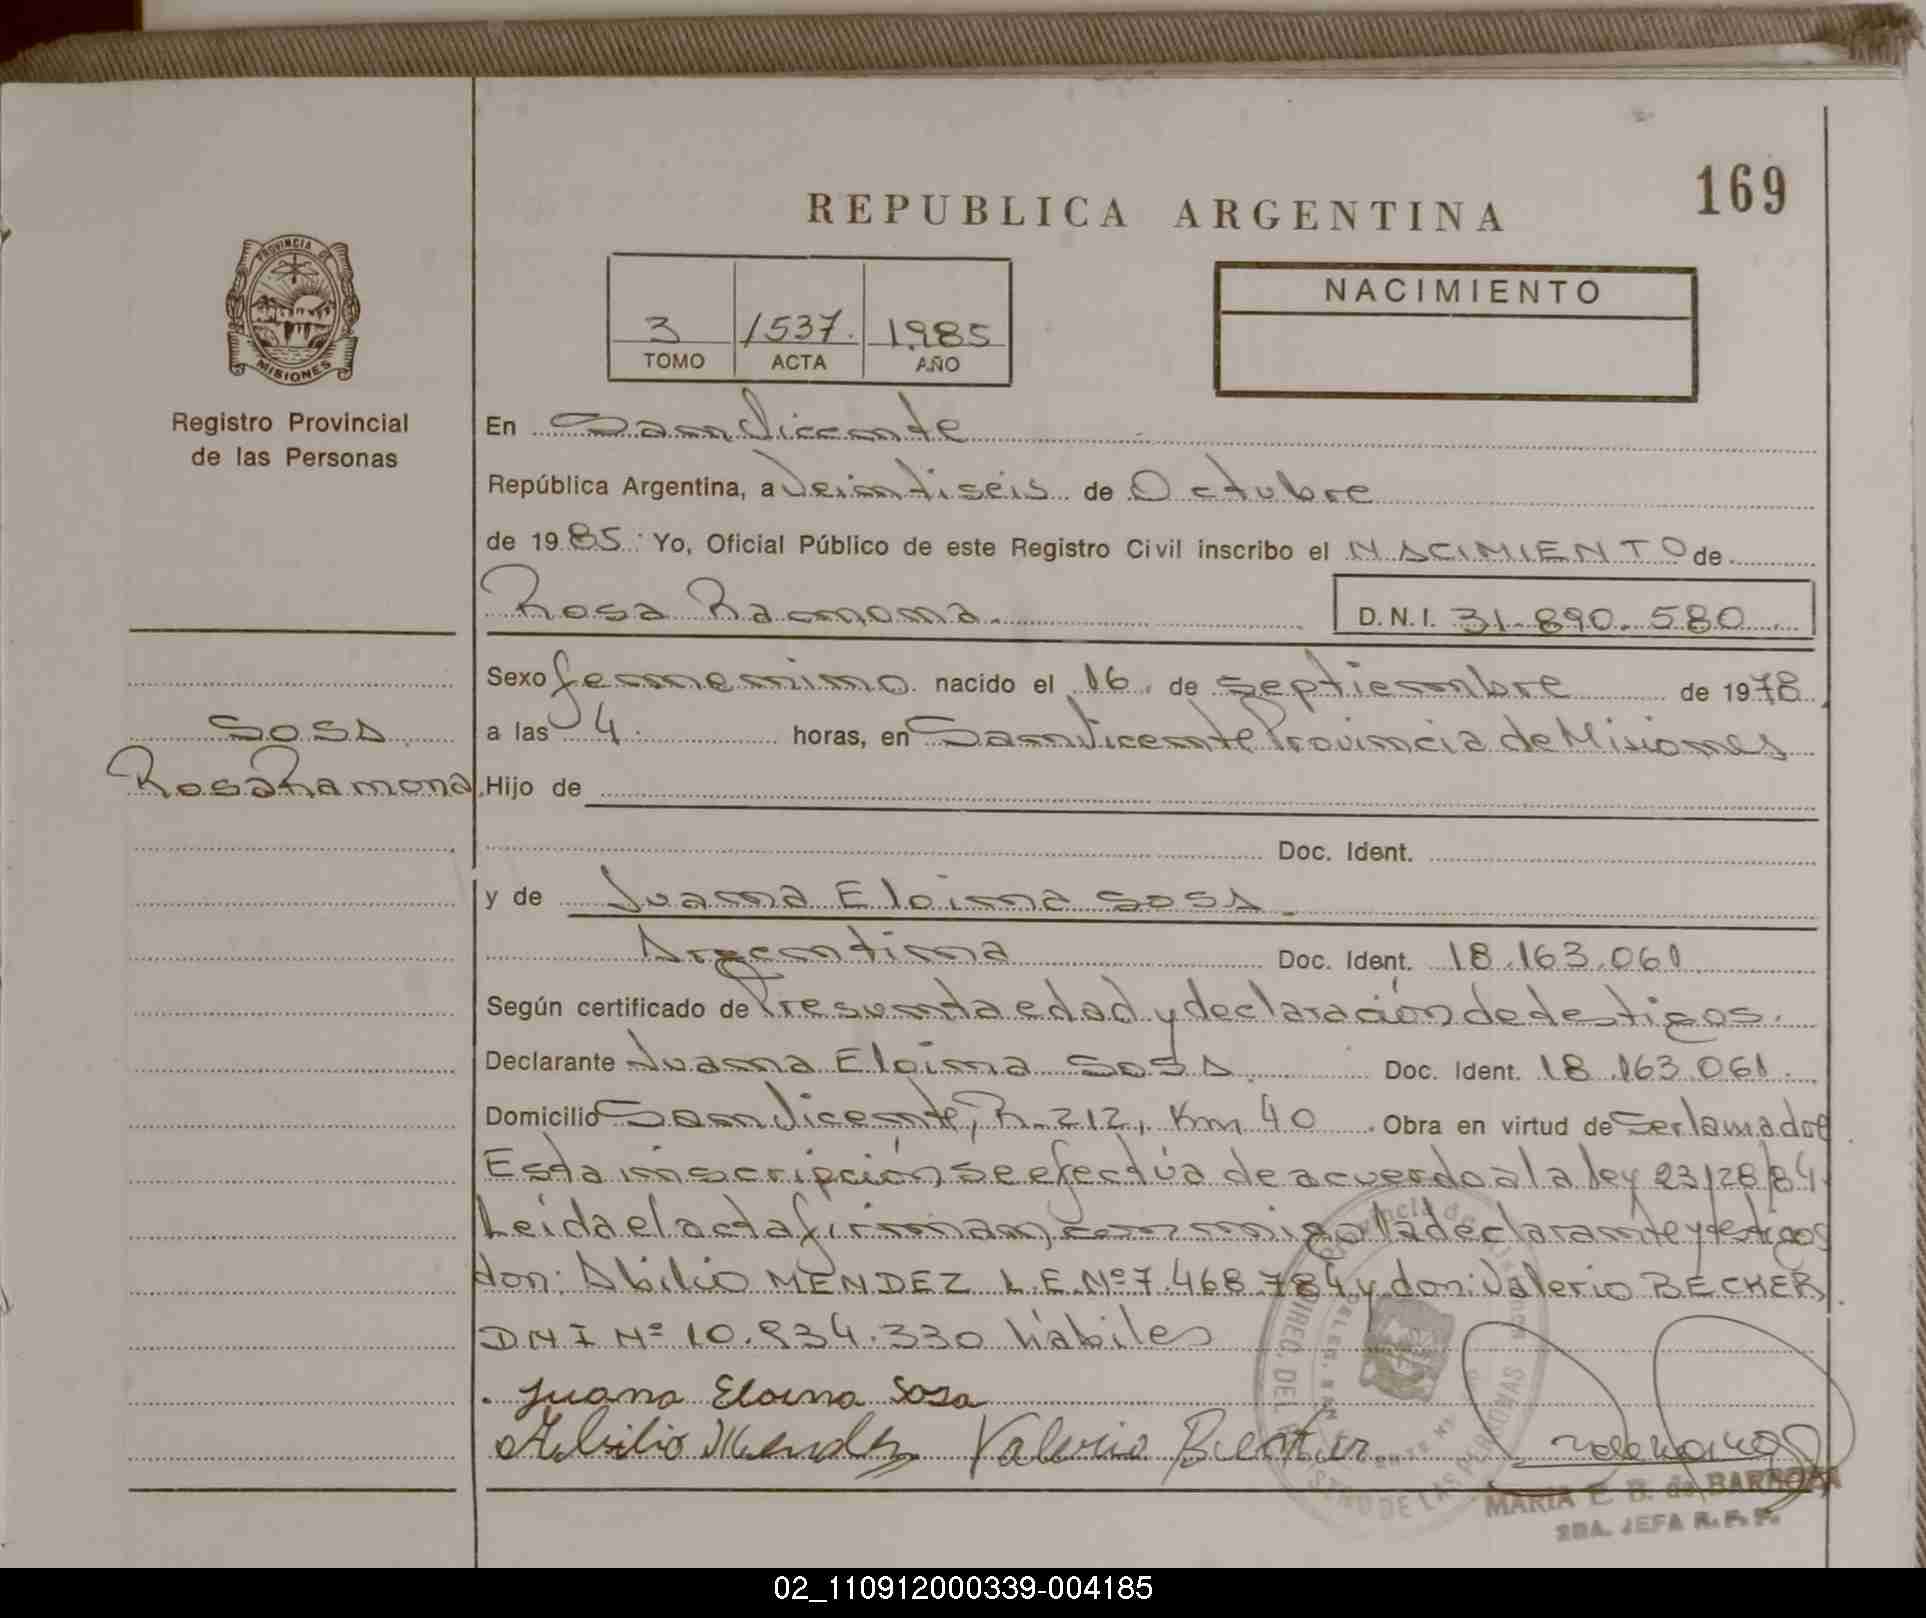 169
REPUBLICA ARGENTINA
PROVINCIA DE
MISIONES
Registro Provincial
de las Personas
3 1537. 1985
TOMO ACTA AÑO
NACIMIENTO
En San Vicente
República Argentina, a Veintiséis de Octubre
de 1985. Yo, Oficial Público de este Registro Civil inscribo el NACIMIENTO de
Rosa Ramona. D.N.I. 31.890.580
Sexo femenino nacido el 16. de septiembre de 1978
SOSA
a las 4. horas, en San Vicente Provincia de Misiones
Rosa Ramona
Hijo de
Doc. Ident.
y de Juana Eloina SOSA
Argentina Doc. Ident. 18.163.061
Según certificado de Presunta edad y declaración de testigos.
Declarante Juana Eloina SOSA Doc. Ident. 18.163.061
Domicilio San Vicente, R. 212, Km 40 Obra en virtud de Ser la madre
Esta inscripción se efectúa de acuerdo a la ley 23/28/84
Leída el acta firman conmigo la declarante y testigos
don: Abilio MENDEZ L.E.Nº 7.468.784 y don: Valerio BECKER
DNI Nº 10.934.330 hábiles
Juana Eloina Sosa
Abilio Mendez Valerio
MARIA E. B. de BARBOZA
2DA. JEFA R.P.P.
02_110912000339-004185